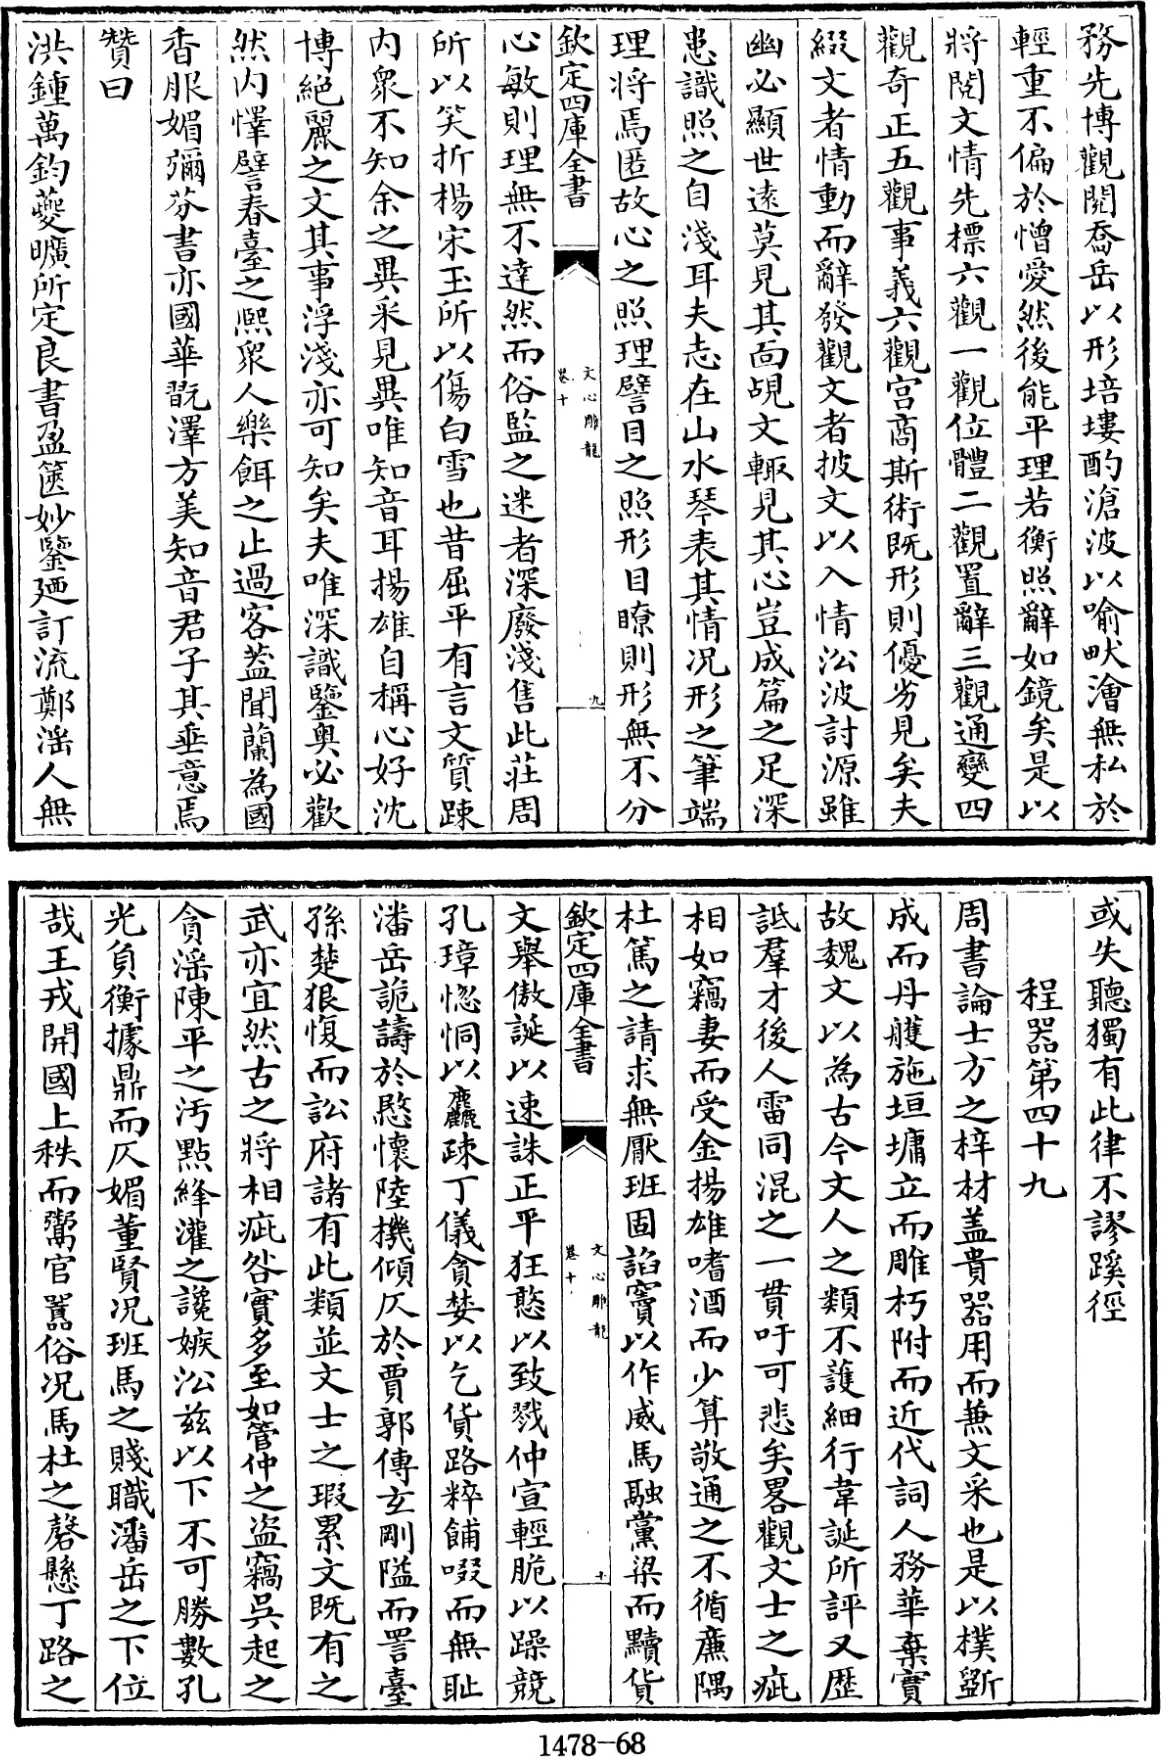 務先博觀閱喬岳以形培塿酌滄波以喻畎澮無私於
輕重不偏於憎愛然後能平理若衡照辭如鏡矣是以
將閱文情先標六觀一觀位體二觀置辭三觀通變四
觀奇正五觀事義六觀宫商斯術既形則優劣見矣夫
綴文者情動而辭發觀文者披文以入情沿波討源雖
幽必顯世逺莫見其面覘文輙見其心豈成篇之足深
患識照之自淺耳夫志在山水琴表其情况形之筆端
理將焉匿故心之照理譬目之照形目瞭則形無不分
欽定四庫全書
文心雕龍
卷十
九
心敏則理無不達然而俗監之迷者深廢淺售此莊周
所以笑折楊宋玉所以傷白雪也昔屈平有言文質踈
内衆不知余之異采見異唯知音耳揚雄自稱心好沈
博絶麗之文其事浮淺亦可知矣夫唯深識鑒奥必歡
然内懌譬春臺之熙衆人樂餌之止過客葢聞蘭為國
香服媚彌芬書亦國華翫澤方美知音君子其垂意焉
贊曰
洪鍾萬鈞夔曠所定良書盈篋妙鑒廼訂流鄭滛人無
或失聽獨有此律不謬蹊徑
程器第四十九
周書論士方之梓材盖貴器用而兼文采也是以樸斵
成而丹雘施垣墉立而雕杇附而近代詞人務華棄實
故魏文以為古今文人之類不護細行韋誕所評又歴
詆羣才後人雷同混之一貫吁可悲矣畧觀文士之疵
相如竊妻而受金揚雄嗜酒而少算敬通之不循廉隅
杜篤之請求無厭班固諂竇以作威馬融黨梁而黷貨
欽定四庫全書
文心雕龍
卷十
十
文舉傲誕以速誅正平狂憨以致戮仲宣輕脆以躁競
孔璋惚恫以麤疎丁儀貪婪以乞貨路粹餔啜而無耻
潘岳詭譸於愍懷陸機傾仄於賈郭傅玄剛隘而詈臺
孫楚狠愎而訟府諸有此類並文士之瑕累文既有之
武亦宜然古之將相疵咎實多至如管仲之盗竊吳起之
貪滛陳平之汚點絳灌之讒嫉沿兹以下不可勝數孔
光負衡據鼎而仄媚董賢况班馬之賤職潘岳之下位
哉王戎開國上秩而鬻官囂俗况馬杜之磬懸丁路之
1478-68